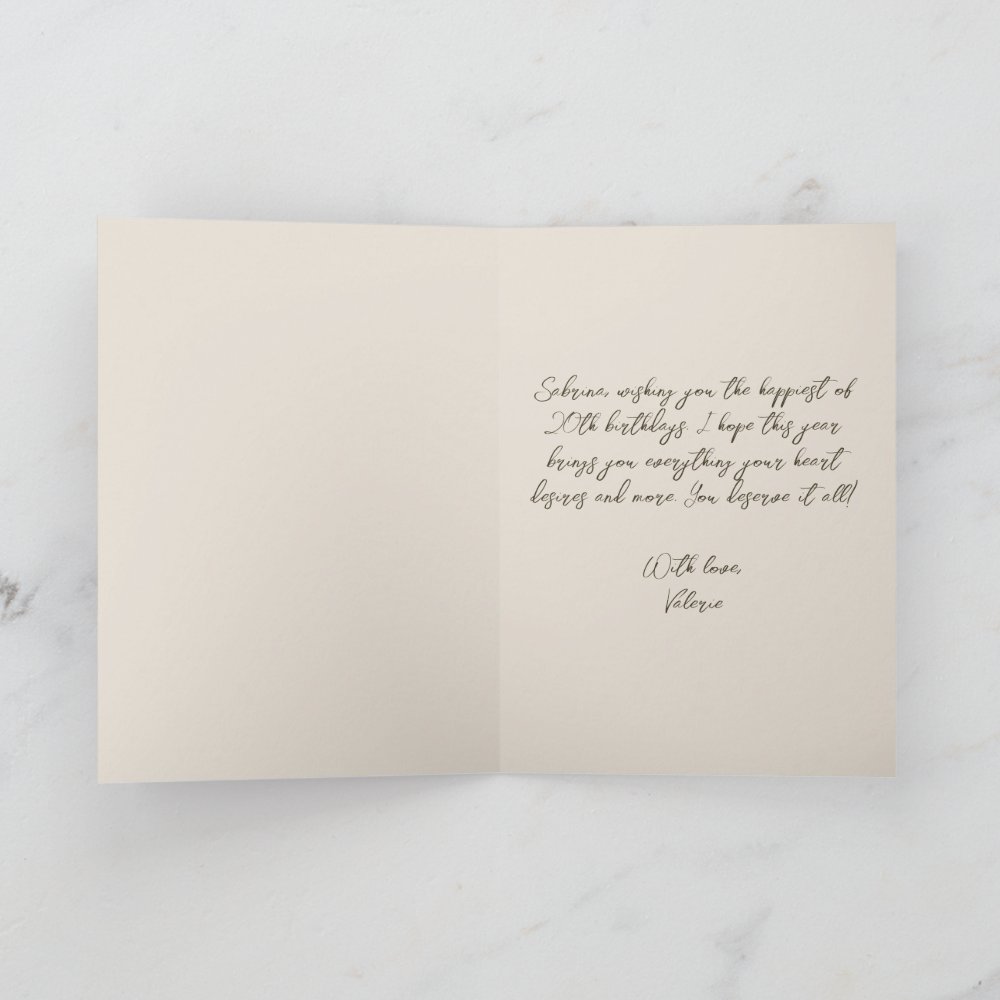 Sabrina, wishing you the happiest of
20th birthdays. I hope this year
brings you everything your heart
desires and more. You deserve it all!
With love,
Valerie